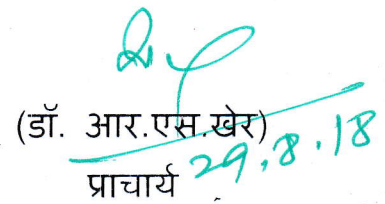 (डॉ. आर.एस.खेर)
प्राचार्य 29.8.18